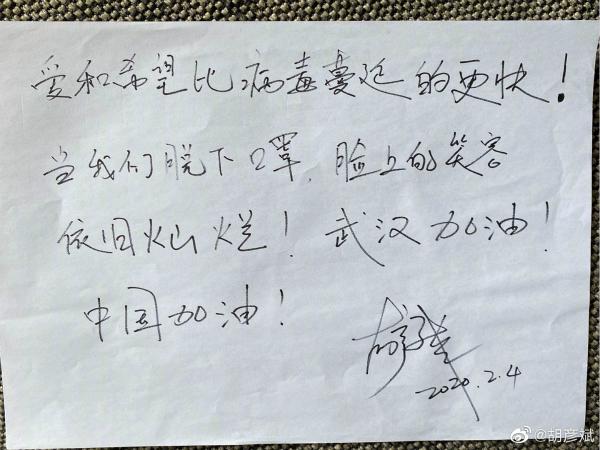 爱和希望比病毒蔓延的更快！
当我们脱下口罩，脸上的笑容
依旧灿烂！武汉加油！
中国加油！
2020.2.4
@胡彦斌